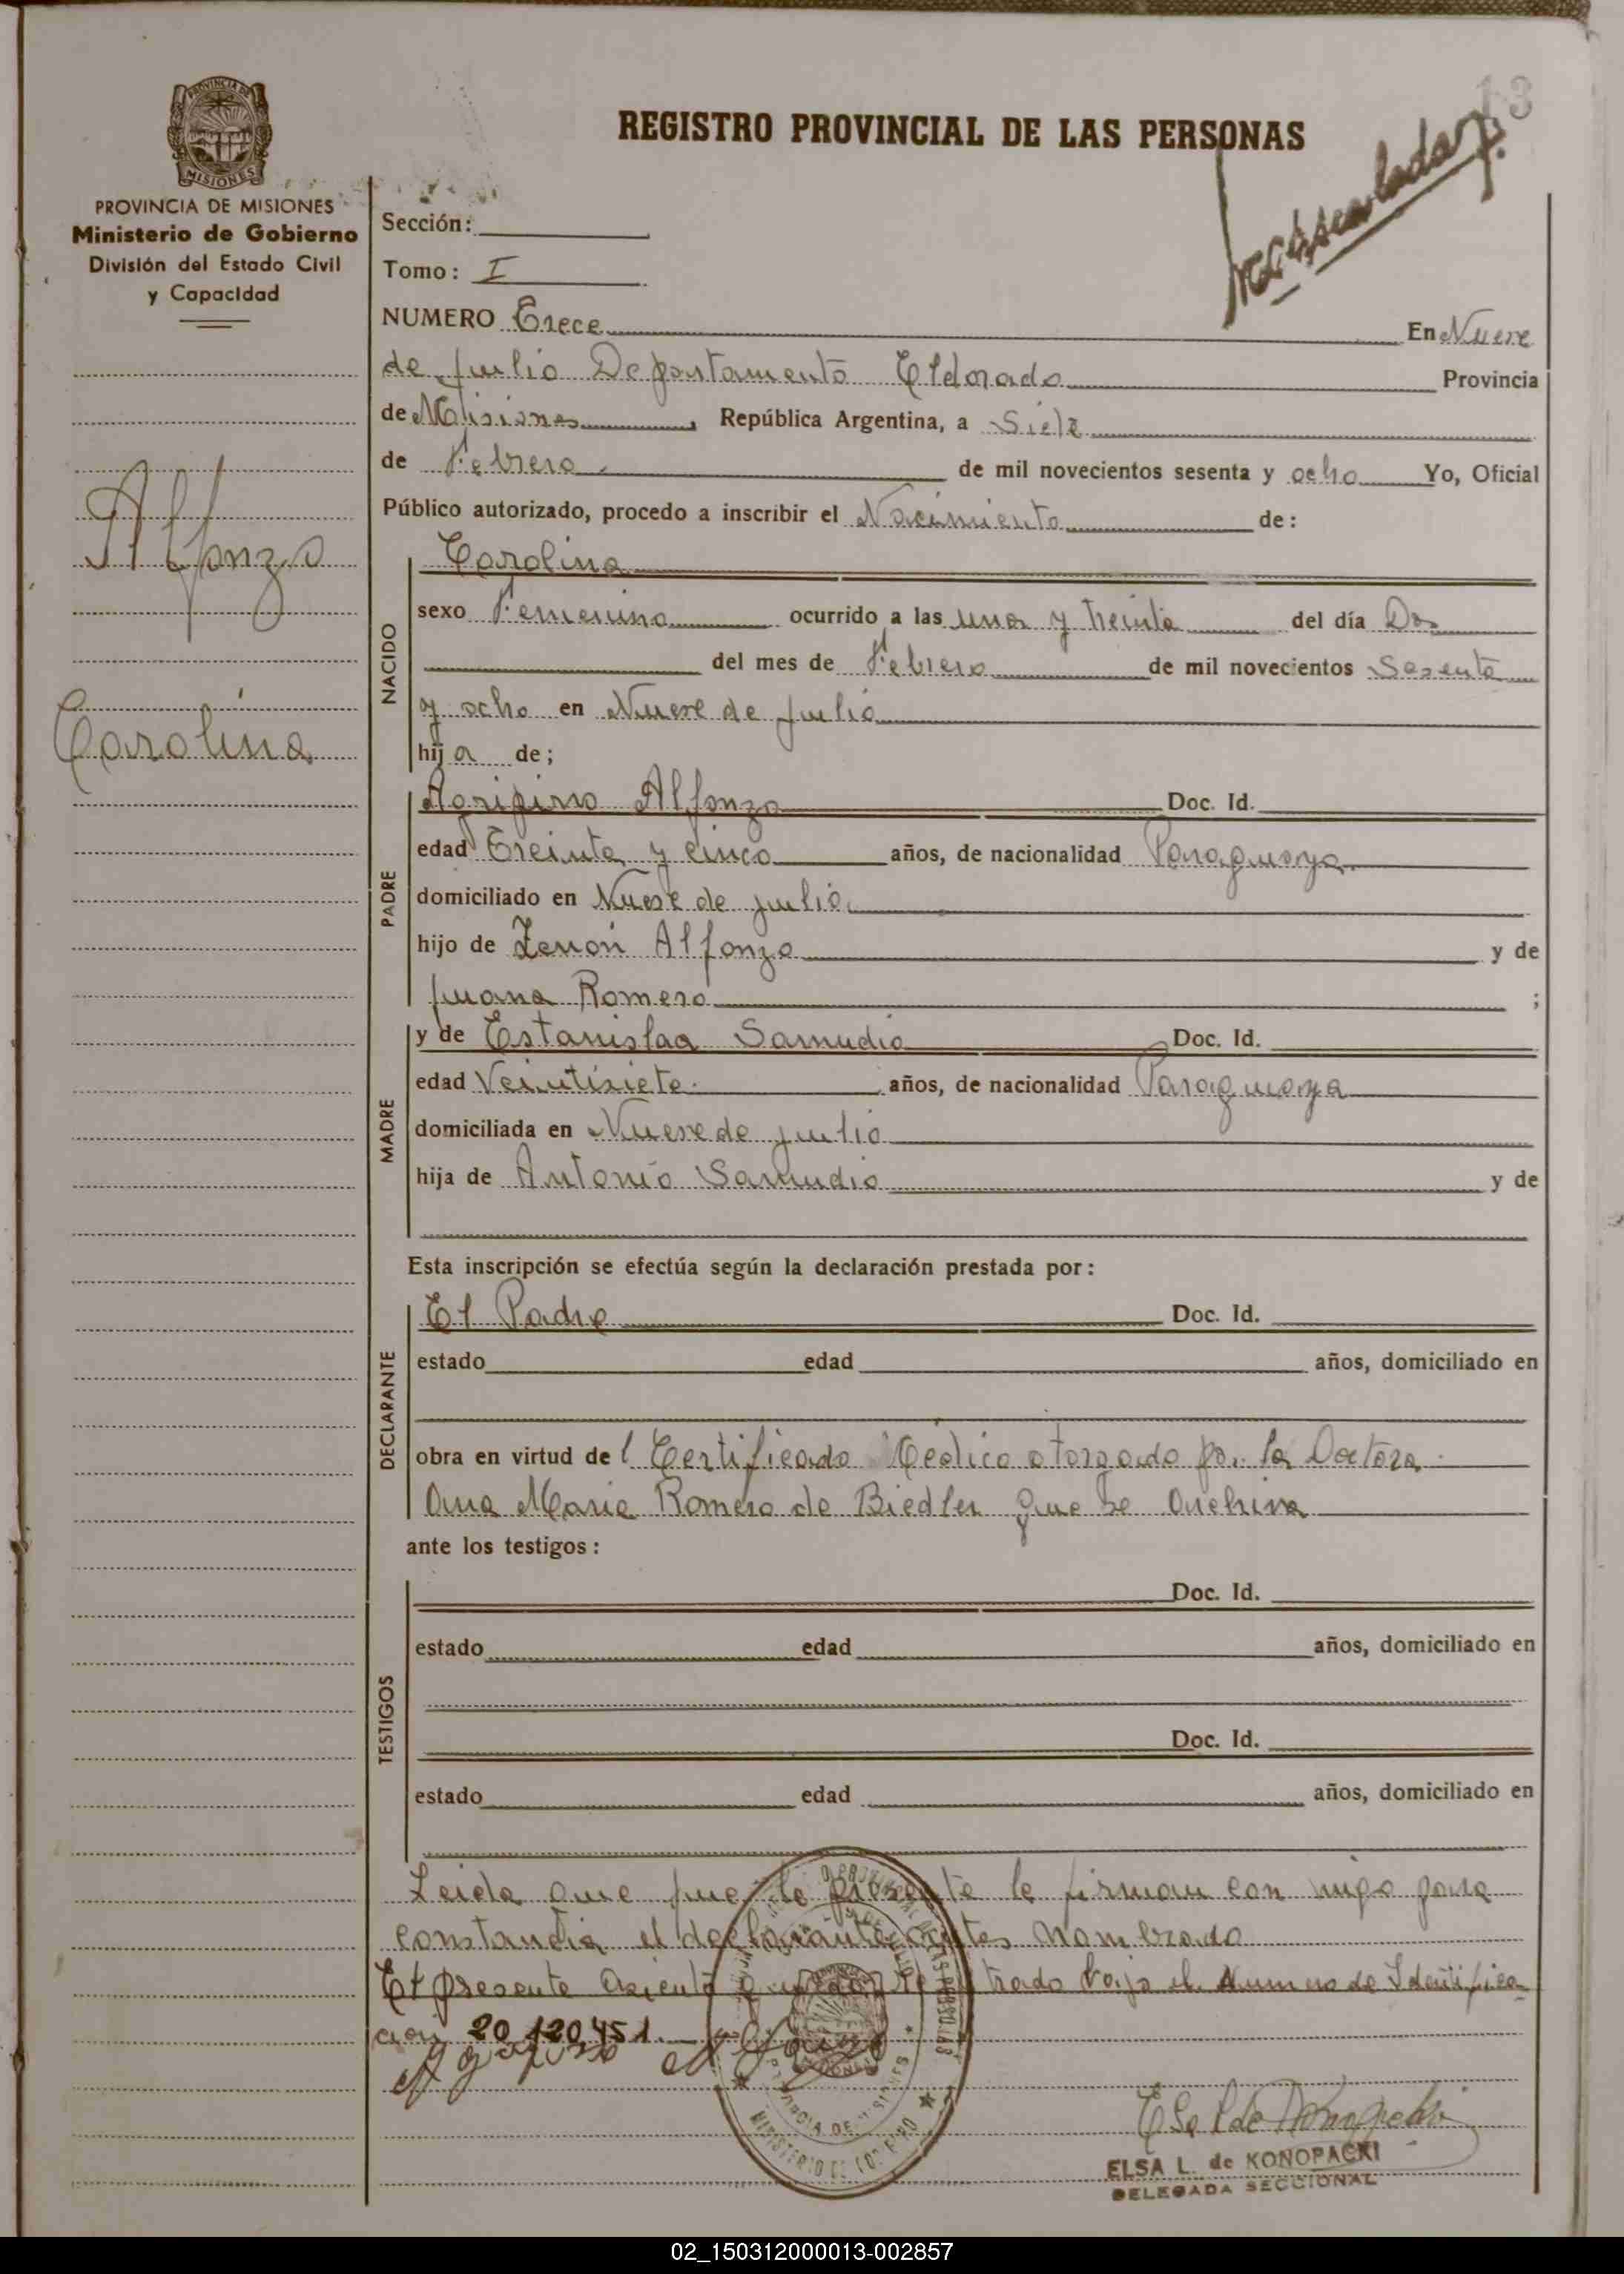 13
REGISTRO PROVINCIAL DE LAS PERSONAS
PROVINCIA DE MISIONES
Ministerio de Gobierno
División del Estado Civil
y Capacidad
Alfonzo
Carolina
Sección:
Tomo: I
NUMERO Trece En Nueve
de Julio Departamento Eldorado Provincia
de Misiones, República Argentina, a Siete
de Febrero de mil novecientos sesenta y ocho Yo, Oficial
Público autorizado, procedo a inscribir el Nacimiento de:
NACIDO
Carolina
sexo Femenino ocurrido a las una y treinta del día Dos
del mes de Febrero de mil novecientos Sesenta
y ocho en Nueve de Julio
hij a de;
PADRE
Agripino Alfonzo Doc. Id.
edad Treinta y cinco años, de nacionalidad Paraguaya
domiciliado en Nueve de Julio
hijo de Zenón Alfonzo y de
Juana Romero ;
MADRE
y de Estanislaa Samudio Doc. Id.
edad Veintisiete años, de nacionalidad Paraguaya
domiciliada en Nueve de Julio
hija de Antonio Samudio y de
Esta inscripción se efectúa según la declaración prestada por:
DECLARANTE
El Padre Doc. Id.
estado edad años, domiciliado en
obra en virtud de l Certificado Médico otorgado por la Doctora
Ana Maria Romero de Biedler que se archiva
ante los testigos:
TESTIGOS
Doc. Id.
estado edad años, domiciliado en
Doc. Id.
estado edad años, domiciliado en
Leida que fue la presente la firman con migo para
constancia el declarante antes nombrado
El presente asiento queda registrado bajo el numero de Identifica
cion 20.120.451.
Agripino Alfonzo
Elsa L de Konopacki
ELSA L. de KONOPACKI
DELEGADA SECCIONAL
02_150312000013-002857